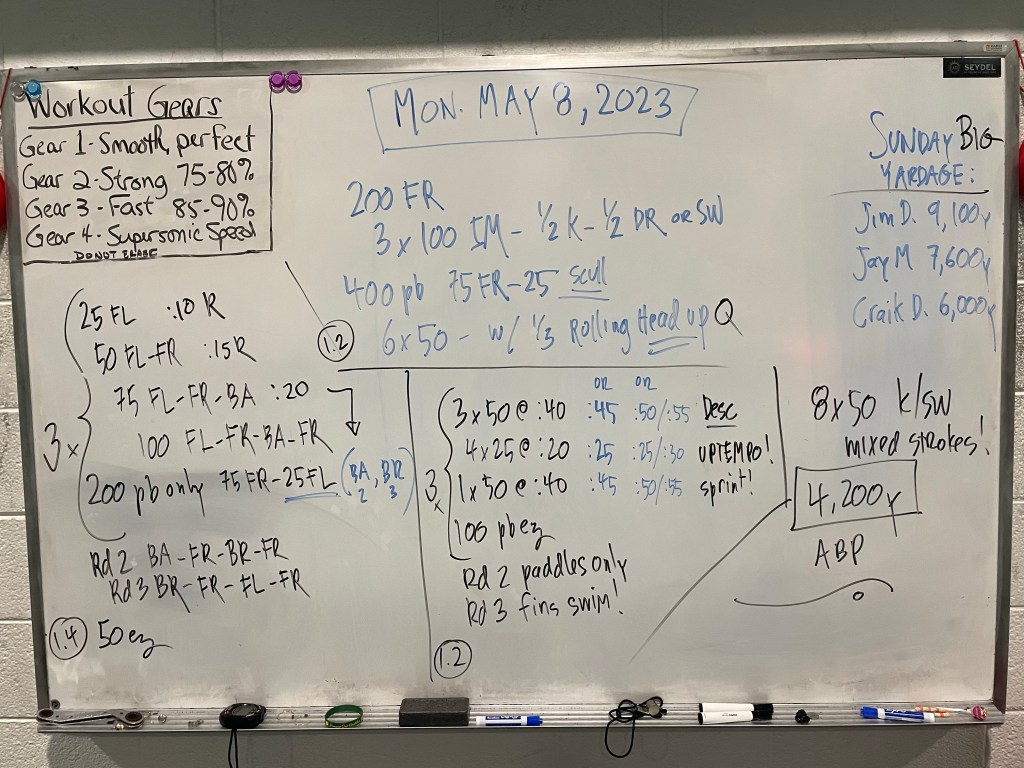 SEYDEL
Workout Gears
Gear 1 - Smooth, perfect
Gear 2 - Strong 75-80%
Gear 3 - Fast 85-90%
Gear 4 - Supersonic Speed
DO NOT ERASE
MON. MAY 8, 2023
SUNDAY BIG
YARDAGE:
Jim D. 9,100y
Jay M 7,600y
Craik D. 6,000y
200 FR
3 x 100 IM - 1/2 K - 1/2 DR or SW
400 pb 75 FR - 25 scull
6 x 50 - w/ 1/3 Rolling Head up Q
1.2
3x
25 FL :10 R
50 FL-FR :15R
75 FL-FR-BA :20
100 FL-FR-BA-FR
200 pb only 75 FR-25FL (BA, BR)
2 3
Rd 2 BA-FR-BR-FR
Rd 3 BR-FR-FL-FR
1.4 50 ez
or or
3x
3 x 50 @ :40 :45 :50/:55 Desc
4 x 25 @ :20 :25 :25/:30 UPTEMPO!
1 x 50 @ :40 :45 :50/:55 sprint!
100 pb ez
Rd 2 paddles only
Rd 3 fins swim!
1.2
8 x 50 k/sw
mixed strokes!
4,200y
ABP